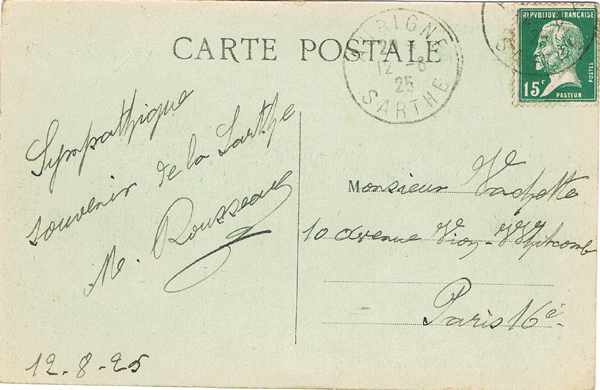 CARTE POSTALE
REPUBLIQUE FRANÇAISE
15c
POSTES
PASTEUR
AUBIGNE
12 -8
25
SARTHE
Sympathique
souvenir de la Sarthe
M. Rousseau
12.8.25
Monsieur Vachette
10 avenue Vion-Whitcomb
Paris 16è